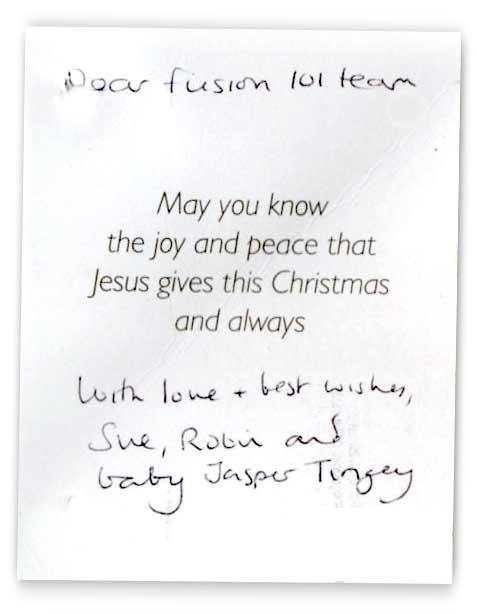 Dear fusion 101 team
May you know
the joy and peace that
Jesus gives this Christmas
and always
With love + best wishes,
Sue, Robin and
baby Jasper Tingey